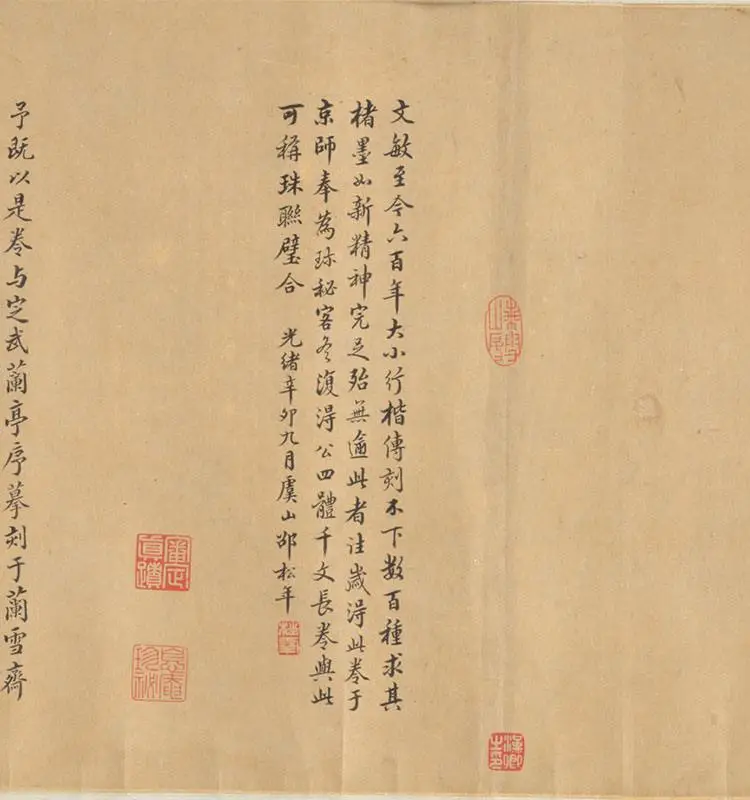 文敏至今六百年大小行楷傳刻不下數百種求其
楮墨如新精神完足殆無逾此者往歲淂此卷于
京師奉為珎秘客冬復淂公四體千文長卷與此
可稱珠聯璧合 光緒辛卯九月虞山邵松年
予既以是卷与定武蘭亭序摹刻于蘭雪齋
審定真蹟
息盦珍祕
漢卿